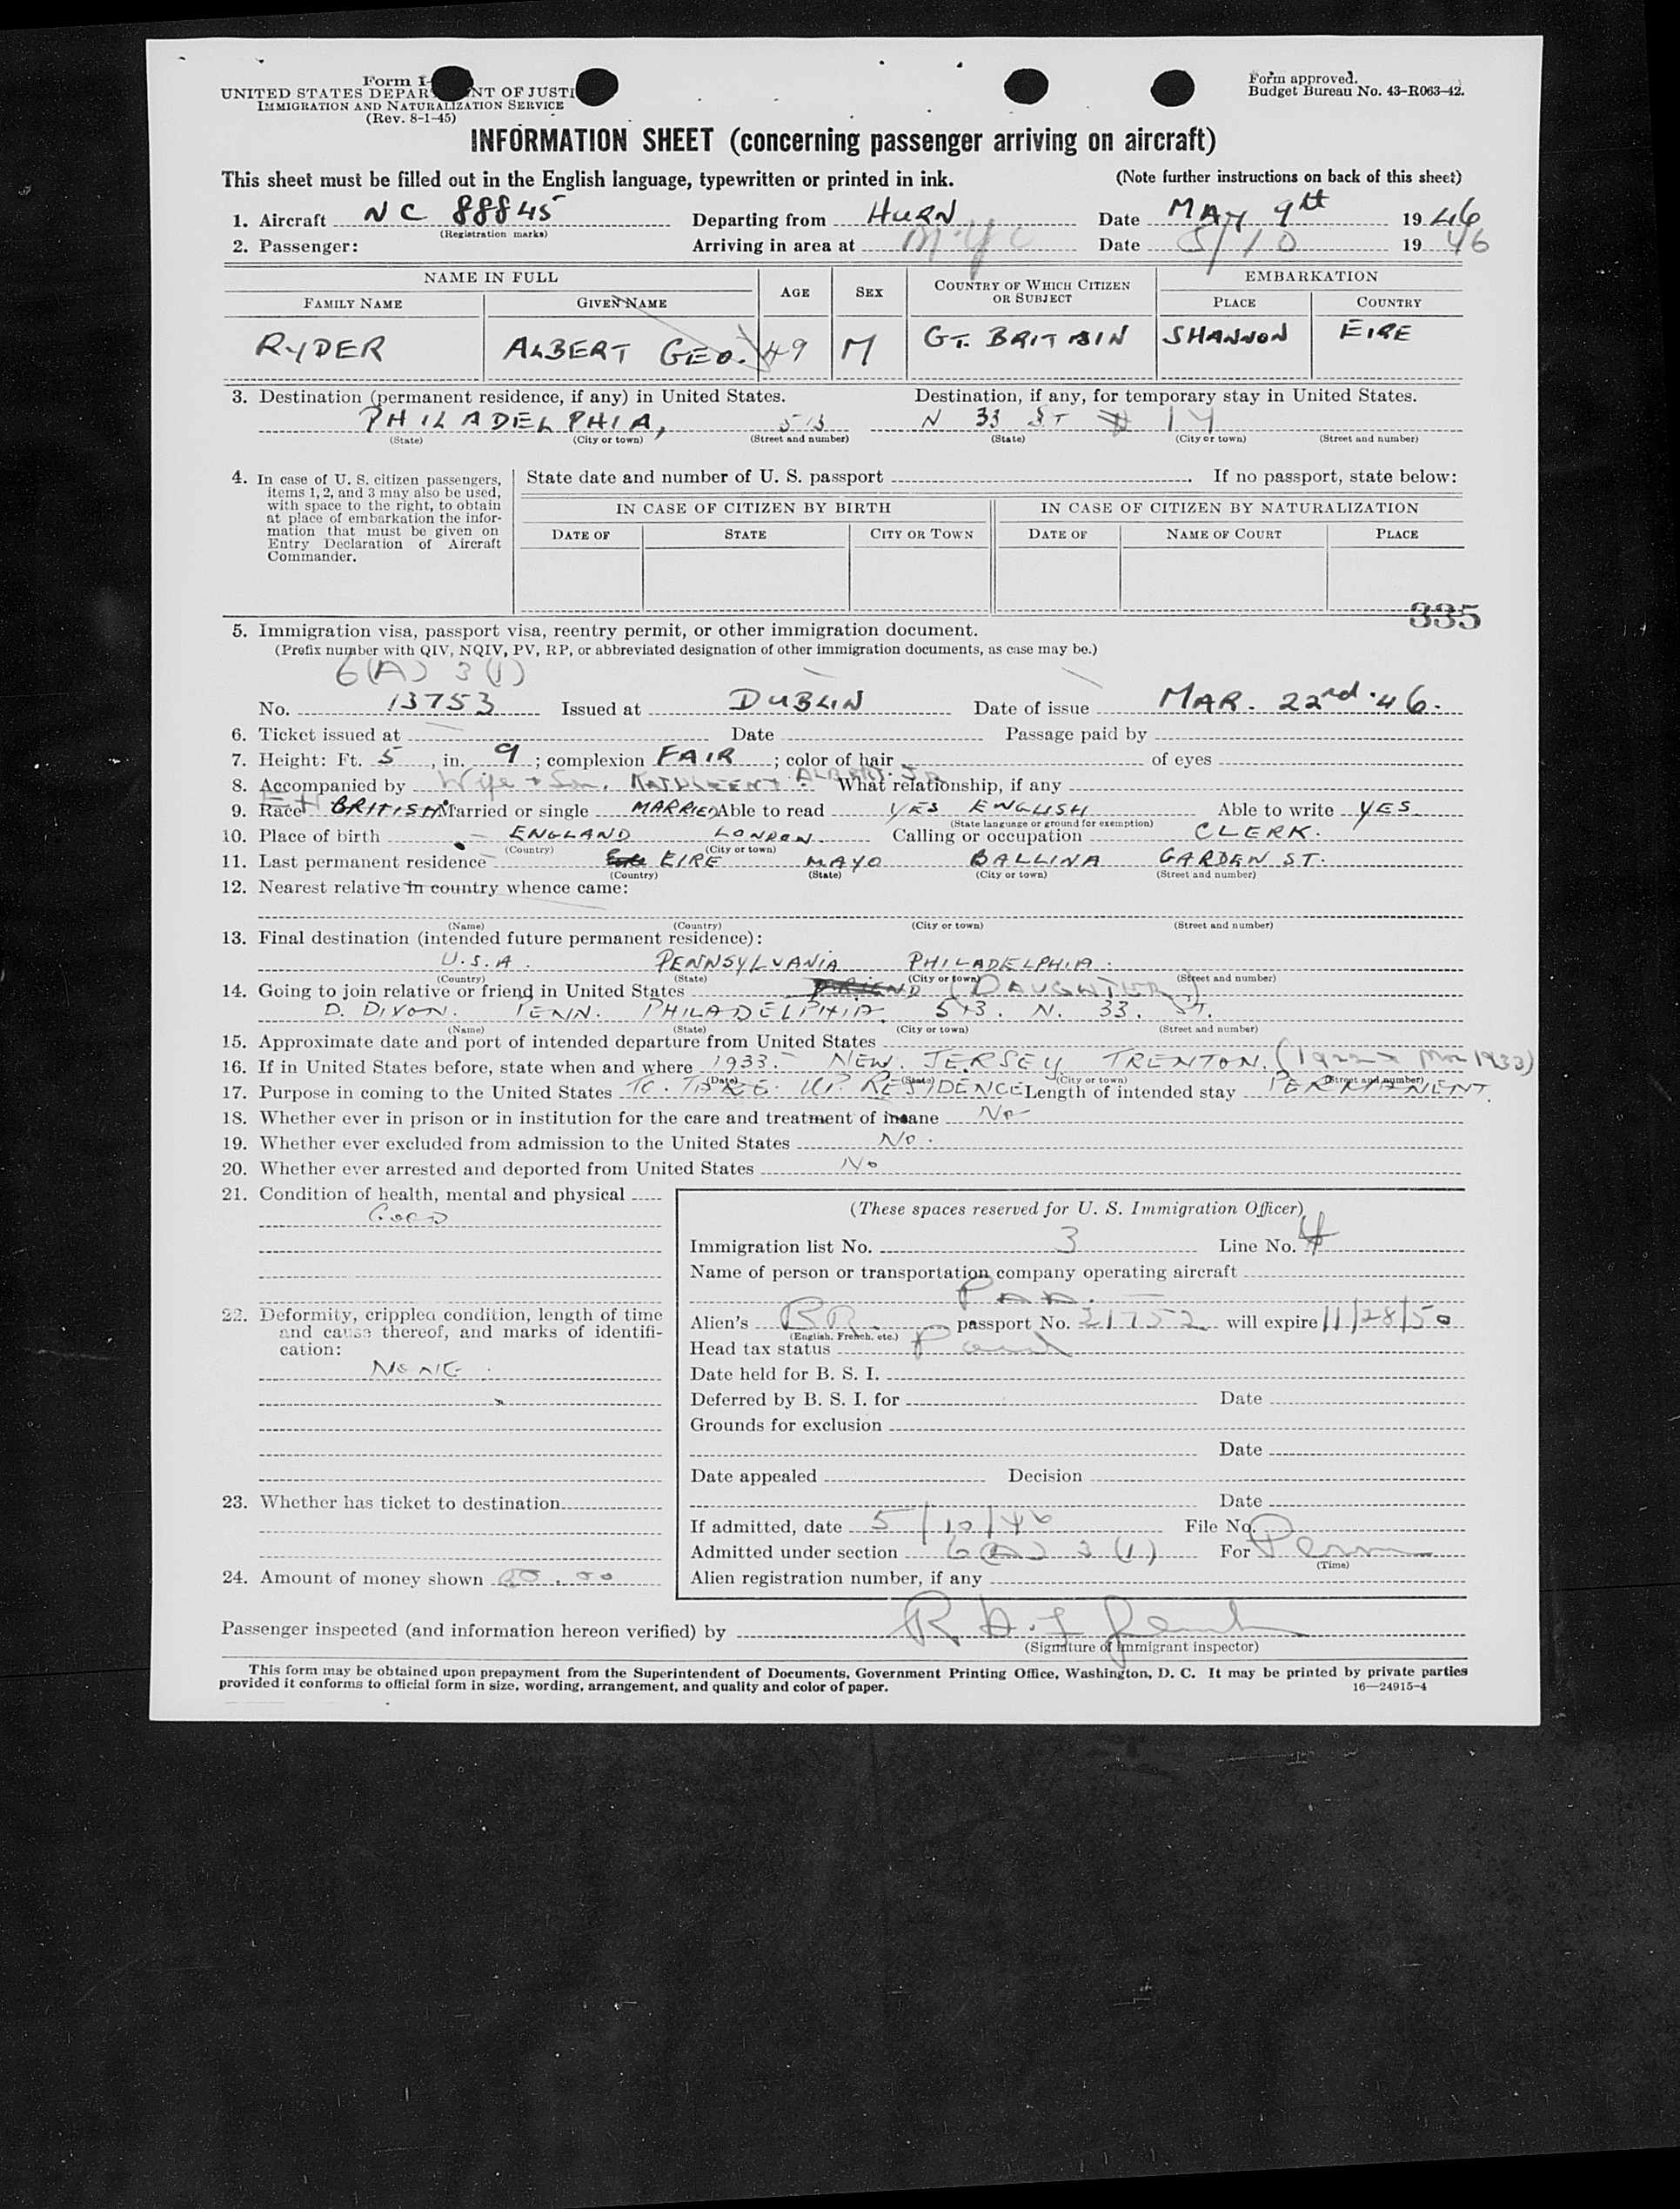 Form I-
UNITED STATES DEPAR NT OF JUSTI
IMMIGRATION AND NATURALIZATION SERVICE
(Rev. 8-1-45)
Form approved.
Budget Bureau No. 43-R063-42.
INFORMATION SHEET (concerning passenger arriving on aircraft)
This sheet must be filled out in the English language, typewritten or printed in ink. (Note further instructions on back of this sheet)
1. Aircraft NC 88845 Departing from HURN Date MAY 9th 1946
(Registration marks)
2. Passenger: Arriving in area at N.Y.C Date 5/10 1946
NAME IN FULL AGE SEX COUNTRY OF WHICH CITIZEN OR SUBJECT EMBARKATION
FAMILY NAME GIVEN NAME PLACE COUNTRY
RYDER ALBERT GEO. 49 M GT. BRITAIN SHANNON EIRE
3. Destination (permanent residence, if any) in United States. Destination, if any, for temporary stay in United States.
PHILADELPHIA, 513 N 33 ST # 14
(State) (City or town) (Street and number) (State) (City or town) (Street and number)
4. In case of U. S. citizen passengers, items 1, 2, and 3 may also be used, with space to the right, to obtain at place of embarkation the information that must be given on Entry Declaration of Aircraft Commander.
State date and number of U. S. passport . If no passport, state below:
IN CASE OF CITIZEN BY BIRTH IN CASE OF CITIZEN BY NATURALIZATION
DATE OF STATE CITY OR TOWN DATE OF NAME OF COURT PLACE
335
5. Immigration visa, passport visa, reentry permit, or other immigration document.
(Prefix number with QIV, NQIV, PV, RP, or abbreviated designation of other immigration documents, as case may be.)
6(A) 3(1)
No. 13753 Issued at DUBLIN Date of issue MAR. 22nd.46.
6. Ticket issued at Date Passage paid by
7. Height: Ft. 5, in. 9; complexion FAIR; color of hair of eyes
8. Accompanied by Wife + Son. KATHLEEN + ALBERT. JR What relationship, if any
9. Race BRITISH Married or single MARRIED Able to read YES ENGLISH Able to write YES.
(State language or ground for exemption)
10. Place of birth ENGLAND LONDON. Calling or occupation CLERK.
(Country) (City or town)
11. Last permanent residence EIRE MAYO BALLINA GARDEN ST.
(Country) (State) (City or town) (Street and number)
12. Nearest relative in country whence came:
(Name) (Country) (City or town) (Street and number)
13. Final destination (intended future permanent residence):
U.S.A. PENNSYLVANIA PHILADELPHIA.
(Country) (State) (City or town) (Street and number)
14. Going to join relative or friend in United States FRIEND (DAUGHTER)
D. DIXON. PENN. PHILADELPHIA. 513. N. 33. ST.
(Name) (State) (City or town) (Street and number)
15. Approximate date and port of intended departure from United States
16. If in United States before, state when and where 1933.- NEW. JERSEY TRENTON.
(Date) (State) (City or town) (Street and number)
17. Purpose in coming to the United States TO. TAKE. UP. RESIDENCE Length of intended stay PERMANENT.
18. Whether ever in prison or in institution for the care and treatment of insane No
19. Whether ever excluded from admission to the United States No.
20. Whether ever arrested and deported from United States No
21. Condition of health, mental and physical
GOOD
22. Deformity, crippled condition, length of time and cause thereof, and marks of identification:
NONE.
23. Whether has ticket to destination
24. Amount of money shown
(These spaces reserved for U. S. Immigration Officer)
Immigration list No. 3 Line No. 4
Name of person or transportation company operating aircraft
PAA.
Alien's BR. passport No. 21752 will expire 11/28/50
(English, French, etc.)
Head tax status Paid
Date held for B. S. I.
Deferred by B. S. I. for Date
Grounds for exclusion
Date
Date appealed Decision
Date
If admitted, date 5/10/46 File No.
Admitted under section 6(A) 3(1) For Perm
(Time)
Alien registration number, if any
Passenger inspected (and information hereon verified) by
(Signature of immigrant inspector)
This form may be obtained upon prepayment from the Superintendent of Documents, Government Printing Office, Washington, D. C. It may be printed by private parties
provided it conforms to official form in size, wording, arrangement, and quality and color of paper. 16—24915-4